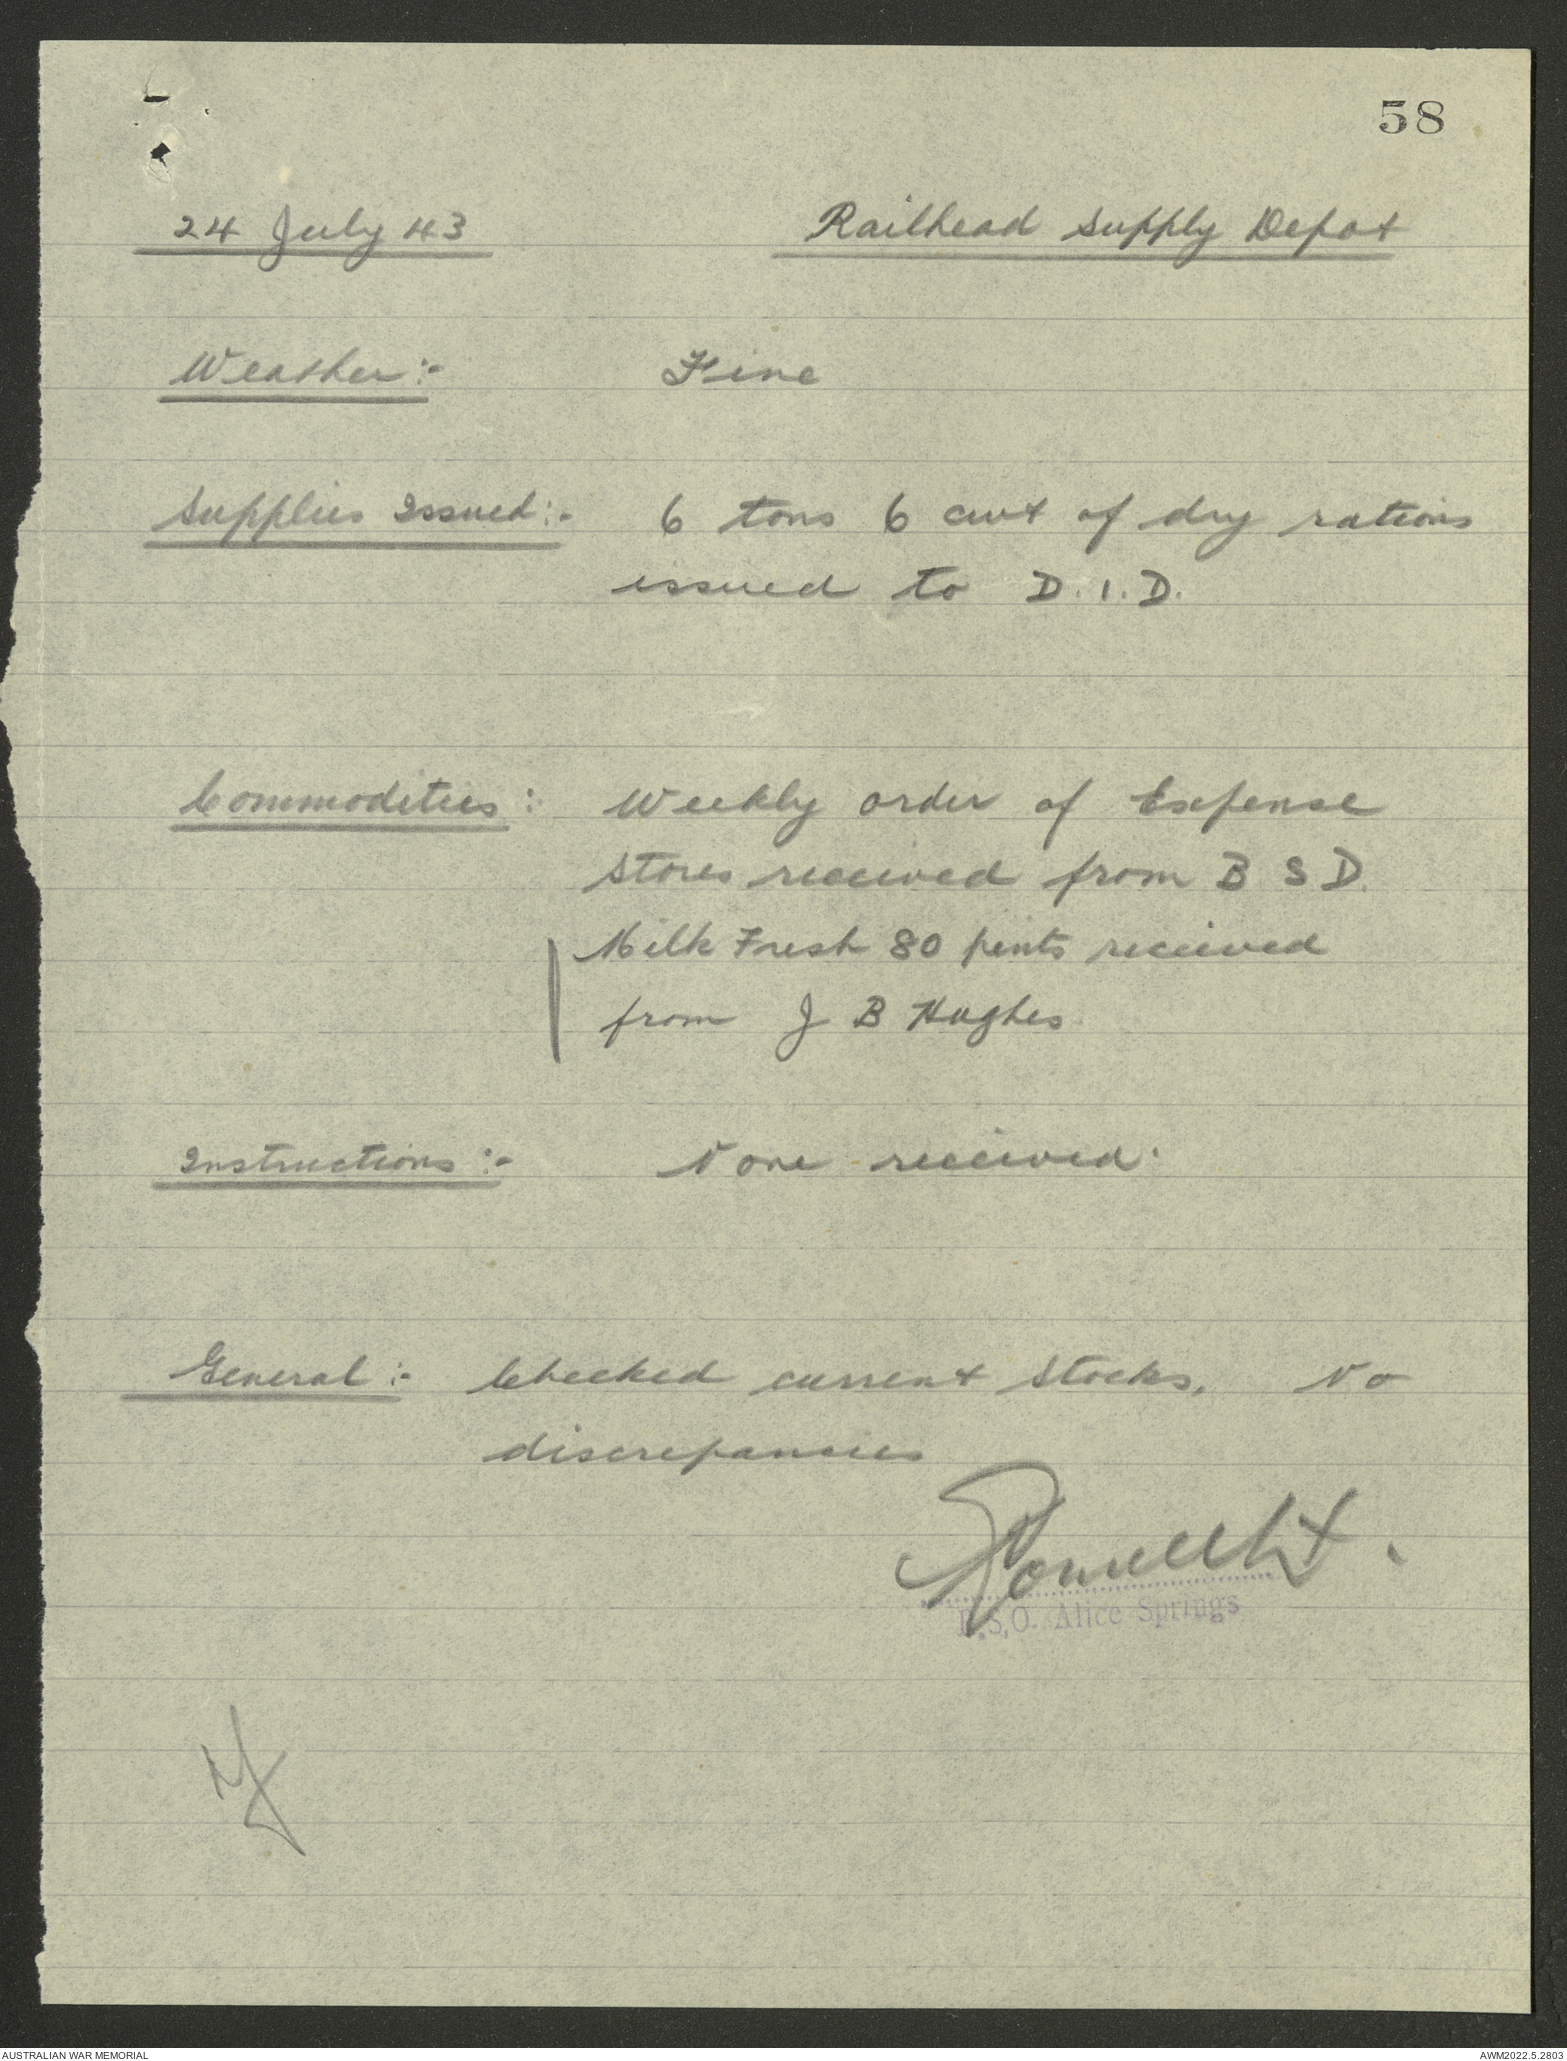 58
24 July 43 Railhead Supply Depot
Weather:- Fine
Supplies Issued:- 6 tons 6 cwt of dry rations
issued to D.I.D.
Commodities: Weekly order of Expense
Stores received from B S D.
Milk Fresh 80 pints received
from J B Hughes
Instructions:- None received.
General:- Checked current stocks. No
discrepancies
S.O. Alice Springs
AUSTRALIAN WAR MEMORIAL AWM2022.5.2803